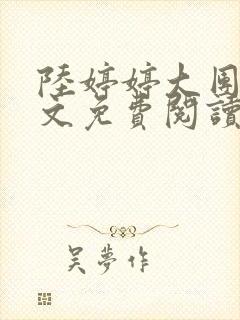 陸婷婷大團
文免費閱讀
吳夢作